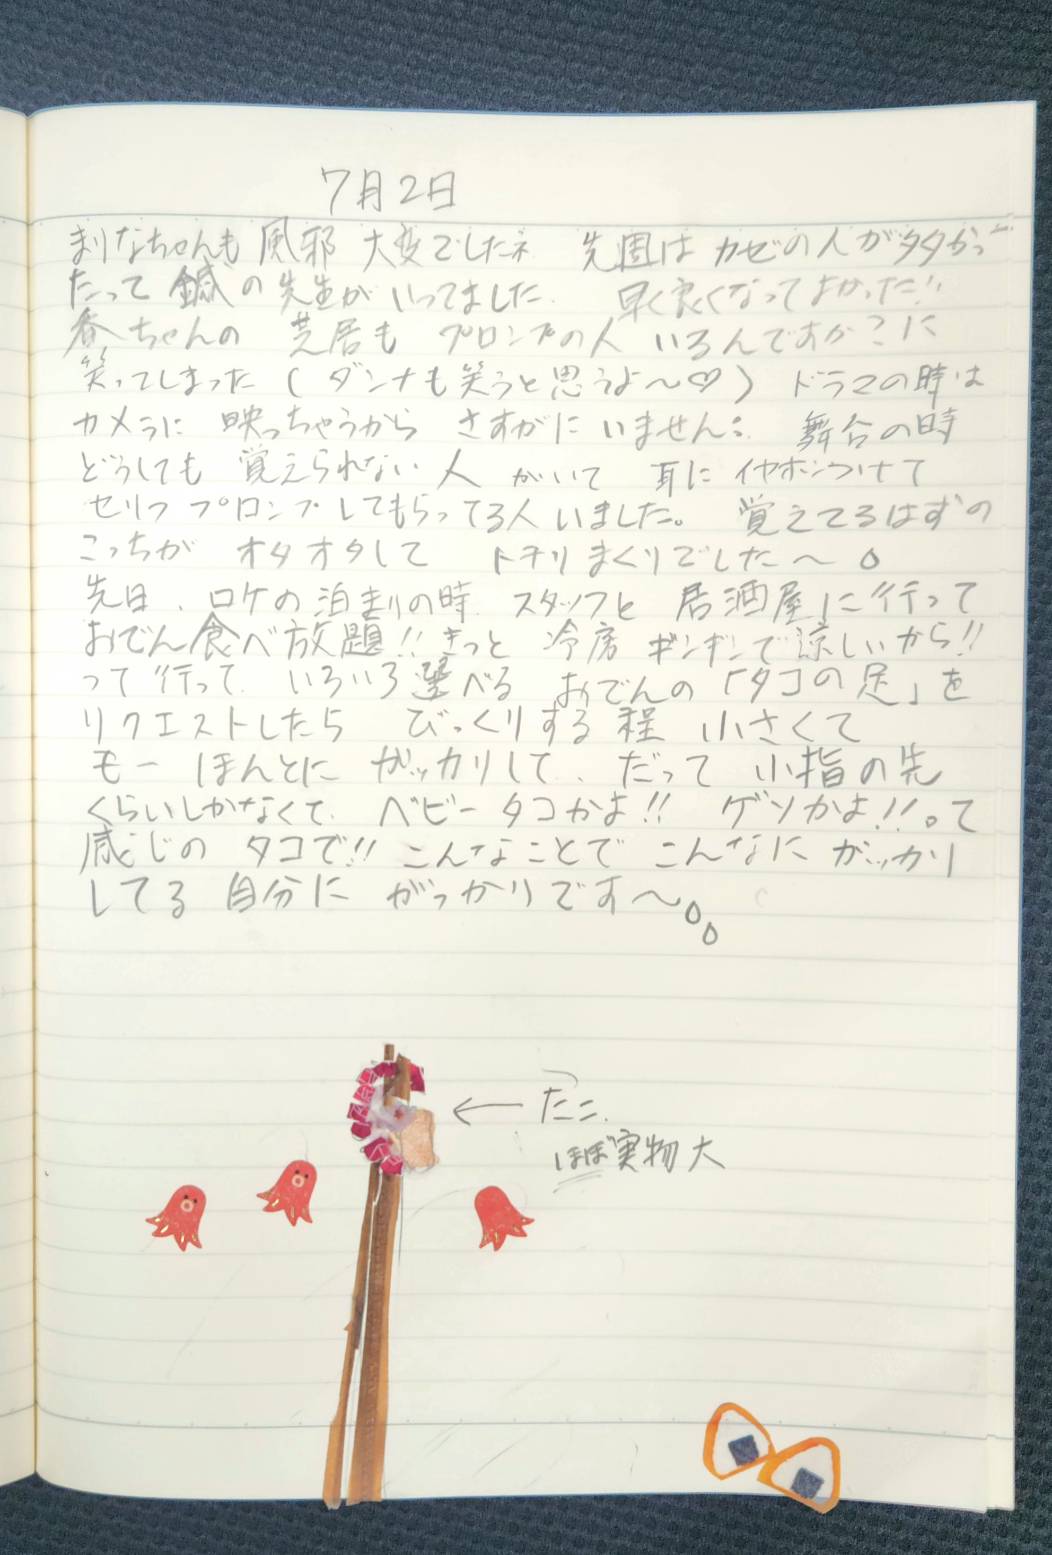 7月2日
まりなちゃんも 風邪 大変でしたネ 先週は カゼの人が多かっ
たって 鍼の先生が いってました 早く良くなってよかった!!
春ちゃんの 芝居も プロンプの人 いるんですか?に
笑ってしまった (ダンナも笑うと思うよ〜♡) ドラマの時は
カメラに 映っちゃうから さすがに いません: 舞台の時
どうしても 覚えられない 人 がいて 耳に イヤホンつけて
セリフ プロンプ してもらってる人 いました。 覚えてるはずの
こっちが オタオタして トチリまくりでした〜
先日、ロケの泊まりの時 スタッフと 居酒屋に行って
おでん食べ放題!! きっと 冷房 ギンギンで涼しいから!!
って 行って いろいろ選べる おでんの「タコの足」を
リクエストしたら びっくりする程 小さくて
もー ほんとに ガッカリして、だって 小指の先
くらいしかなくて ベビー タコかよ!! ゲソかよ!!って
感じの タコで!! こんなことで こんなに がっかり
してる 自分に がっかりです〜
← たこ
ほぼ実物大